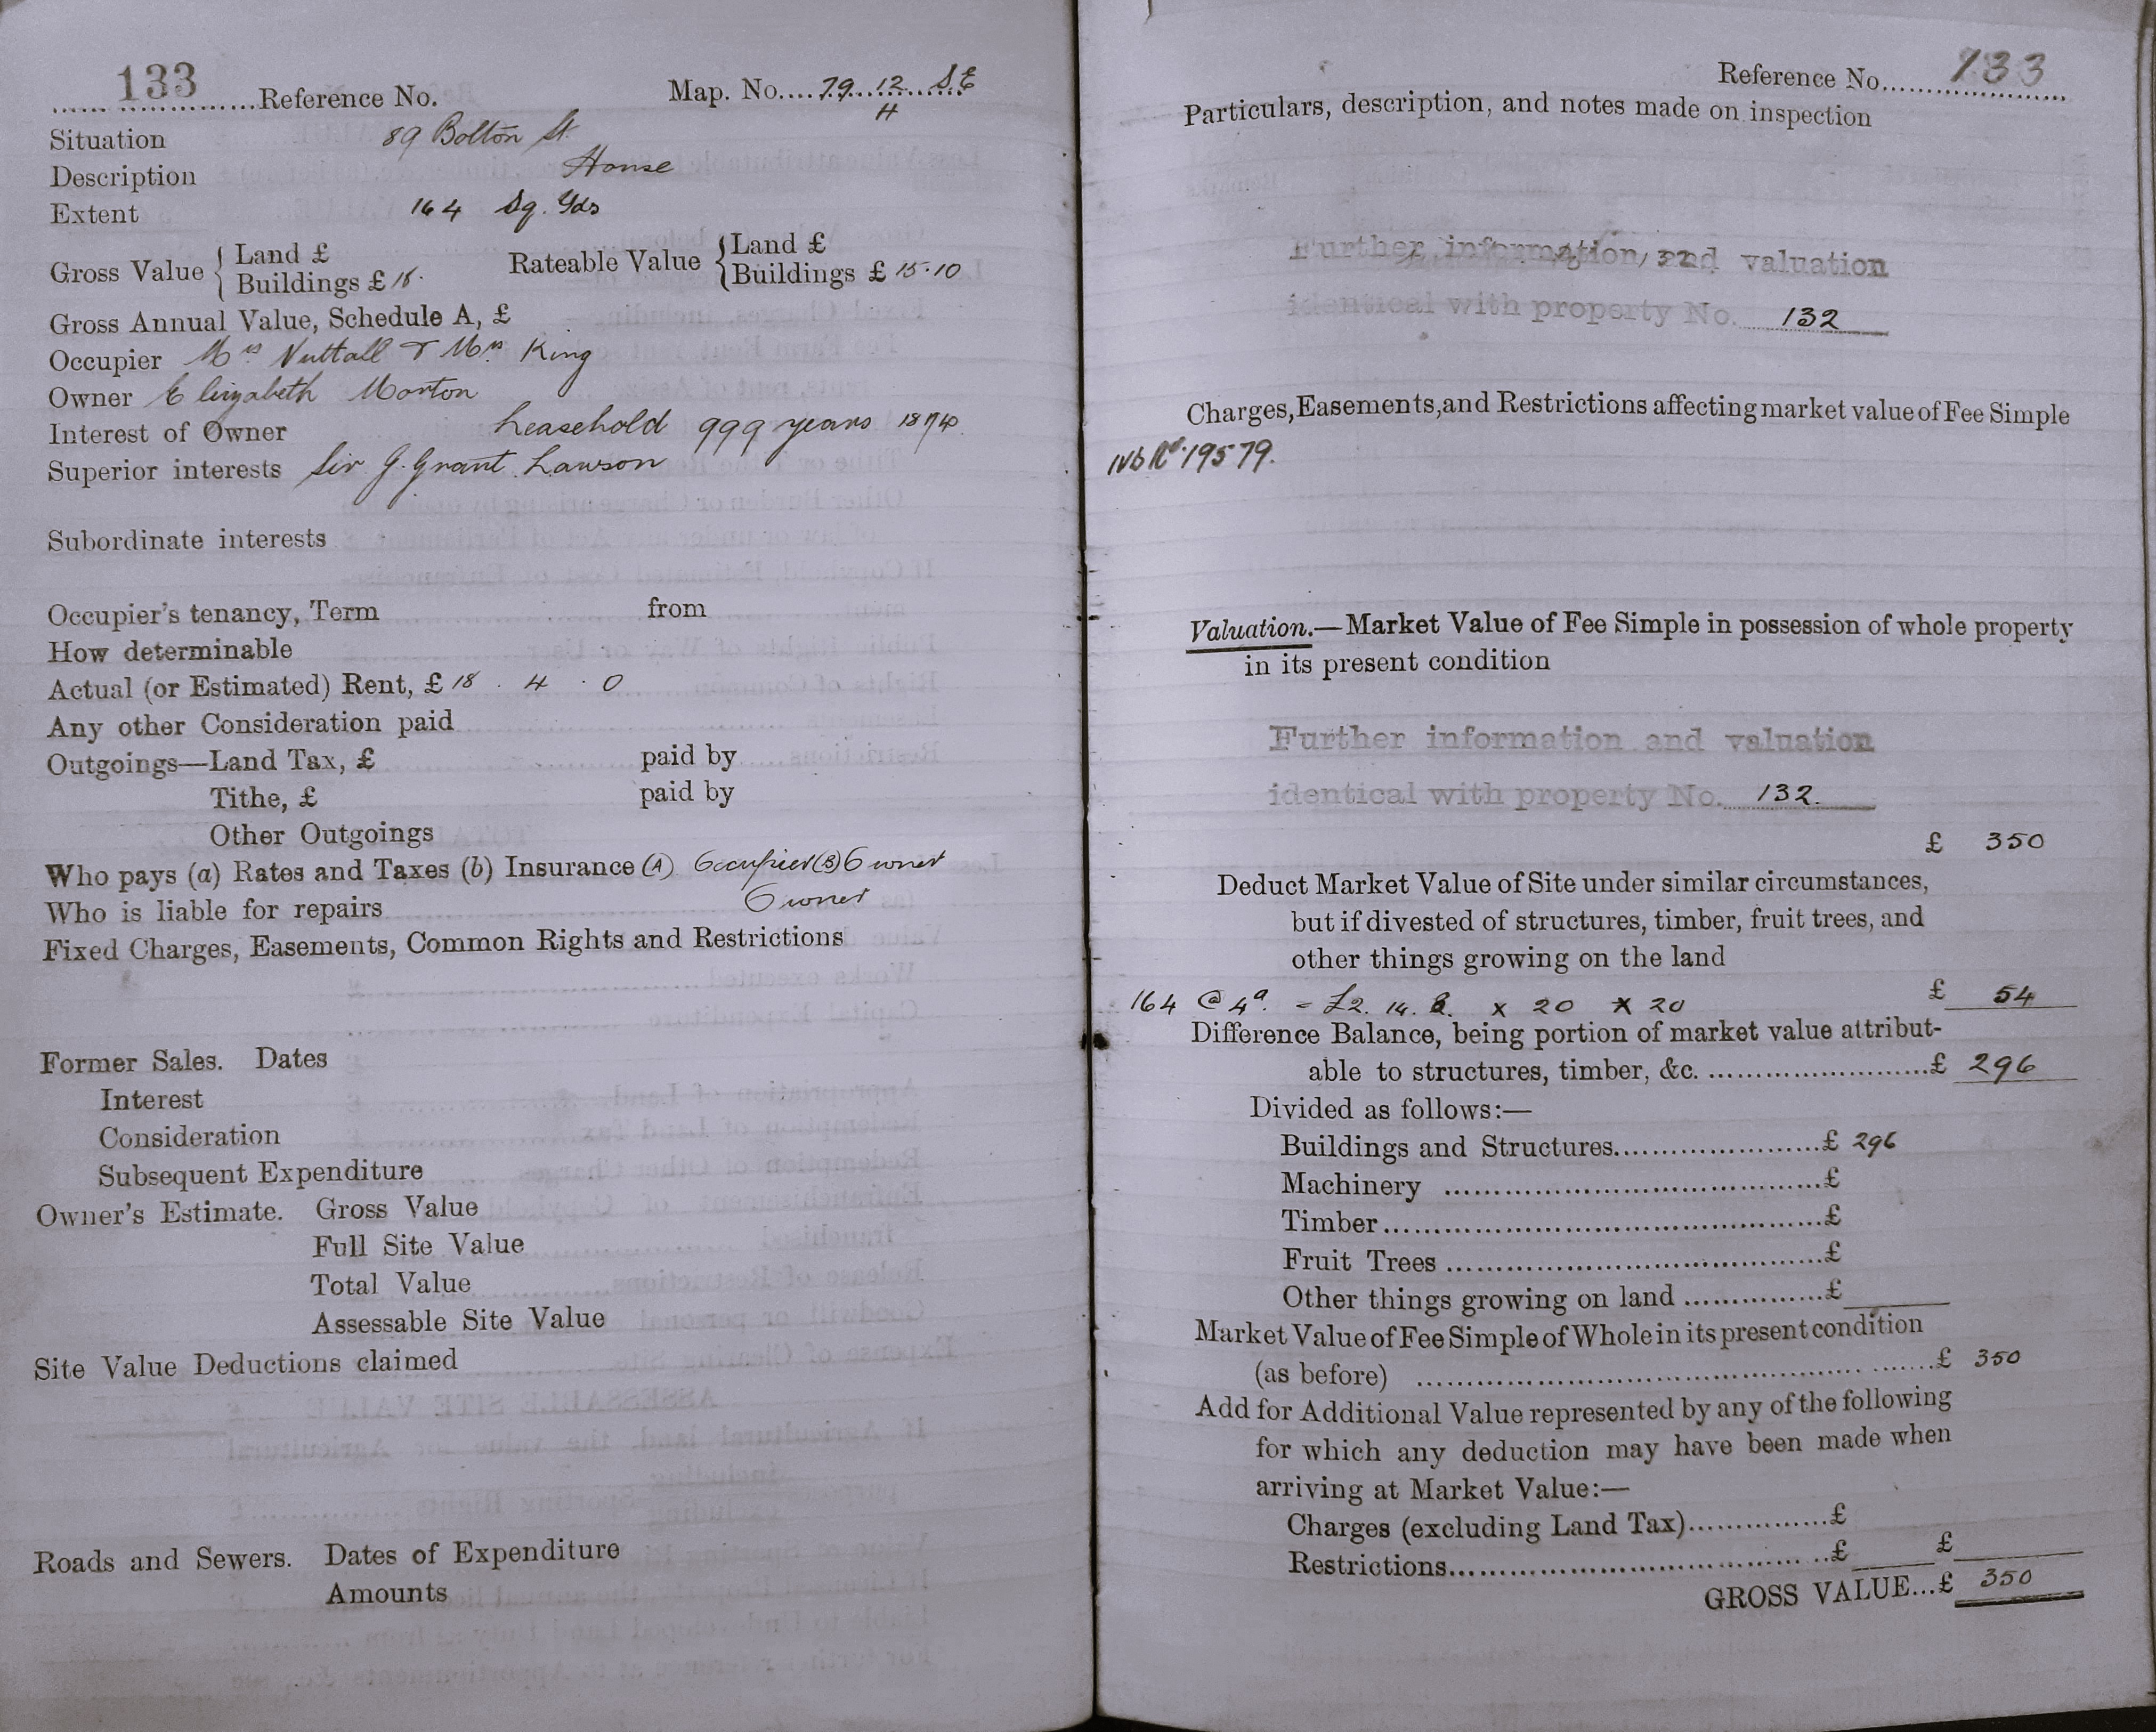 133 Reference No. Map. No. 79. 12 S.E
H
Situation 89 Bolton St.
Description House
Extent 164 Sq. Yds
Gross Value { Land £
Buildings £ 18. Rateable Value { Land £
Buildings £ 15.10
Gross Annual Value, Schedule A, £
Occupier Mrs Nuttall & Mrs King
Owner Elizabeth Morton
Interest of Owner Leasehold 999 years 1874
Superior interests Sir J. Grant Lawson
Subordinate interests
Occupier's tenancy, Term from
How determinable
Actual (or Estimated) Rent, £ 18 . 4 . 0
Any other Consideration paid
Outgoings—Land Tax, £ paid by
Tithe, £ paid by
Other Outgoings
Who pays (a) Rates and Taxes (b) Insurance (A) Occupier (B) Owner
Who is liable for repairs Owner
Fixed Charges, Easements, Common Rights and Restrictions
Former Sales. Dates
Interest
Consideration
Subsequent Expenditure
Owner's Estimate. Gross Value
Full Site Value
Total Value
Assessable Site Value
Site Value Deductions claimed
Roads and Sewers. Dates of Expenditure
Amounts
Reference No. 133
Particulars, description, and notes made on inspection
Further information, and valuation
identical with property No. 132
Charges, Easements, and Restrictions affecting market value of Fee Simple
19579.
Valuation.—Market Value of Fee Simple in possession of whole property
in its present condition
Further information and valuation
identical with property No. 132.
£ 350
Deduct Market Value of Site under similar circumstances,
but if divested of structures, timber, fruit trees, and
other things growing on the land
£ 54
164 @ 4d. = £2. 14. 8. x 20 x 20
Difference Balance, being portion of market value attribut-
able to structures, timber, &c. £ 296
Divided as follows:—
Buildings and Structures £ 296
Machinery £
Timber £
Fruit Trees £
Other things growing on land £
Market Value of Fee Simple of Whole in its present condition
(as before) £ 350
Add for Additional Value represented by any of the following
for which any deduction may have been made when
arriving at Market Value:—
Charges (excluding Land Tax) £
Restrictions £ £
GROSS VALUE...£ 350